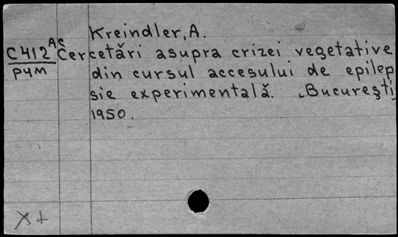 Kreindler, A.
C412 Ac Cercetări asupra crizei vegetative
P4M din cursul accesului de epilep
sie experimentală. [București]
1950.
X+